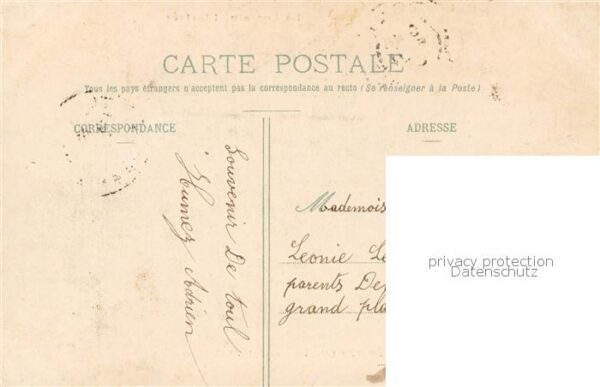 CARTE POSTALE
Tous les pays étrangers n'acceptent pas la correspondance au recto (Se renseigner à la Poste)
CORRESPONDANCE
ADRESSE
Souvenir De toul
Humez Adrien
Mademois
Leonie Le
parents De
grand pla
privacy protection
Datenschutz